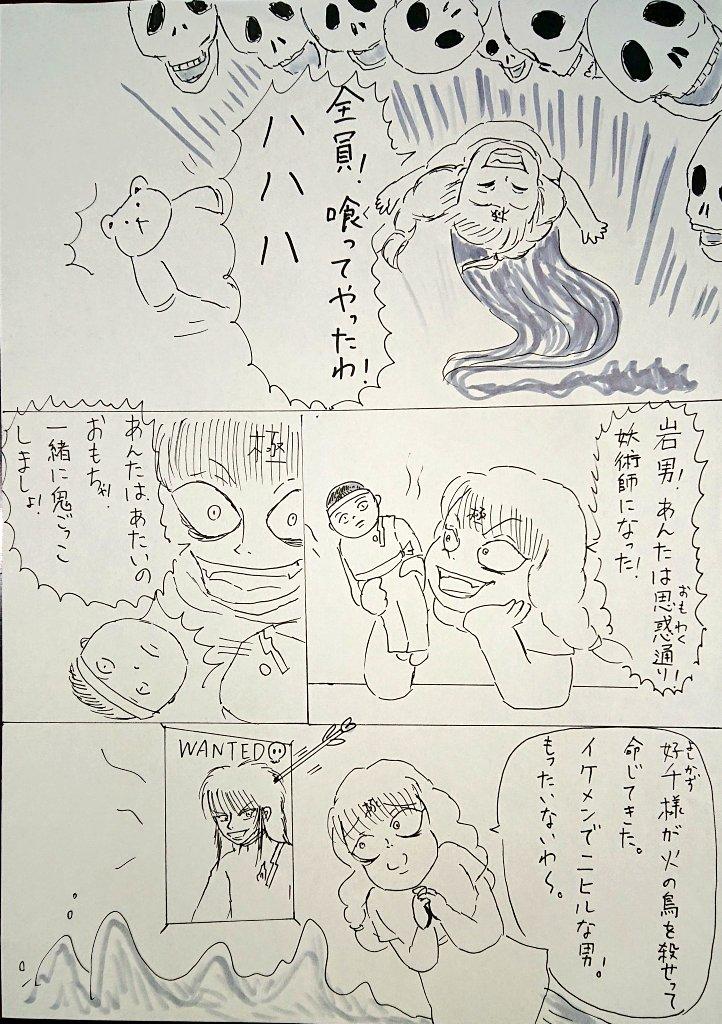 全員！喰ってやったわ！
ハハハ
極
岩男！あんたは思惑通り！
おもわく
妖術師になった！
極
極
あんたは、あたいの
おもちゃ！
一緒に鬼ごっこ
しましょ！
好千様が火の鳥を殺せって
よしかず
命じてきた。
イケメンでニヒルな男！
もったいないわ〜。
極
WANTED